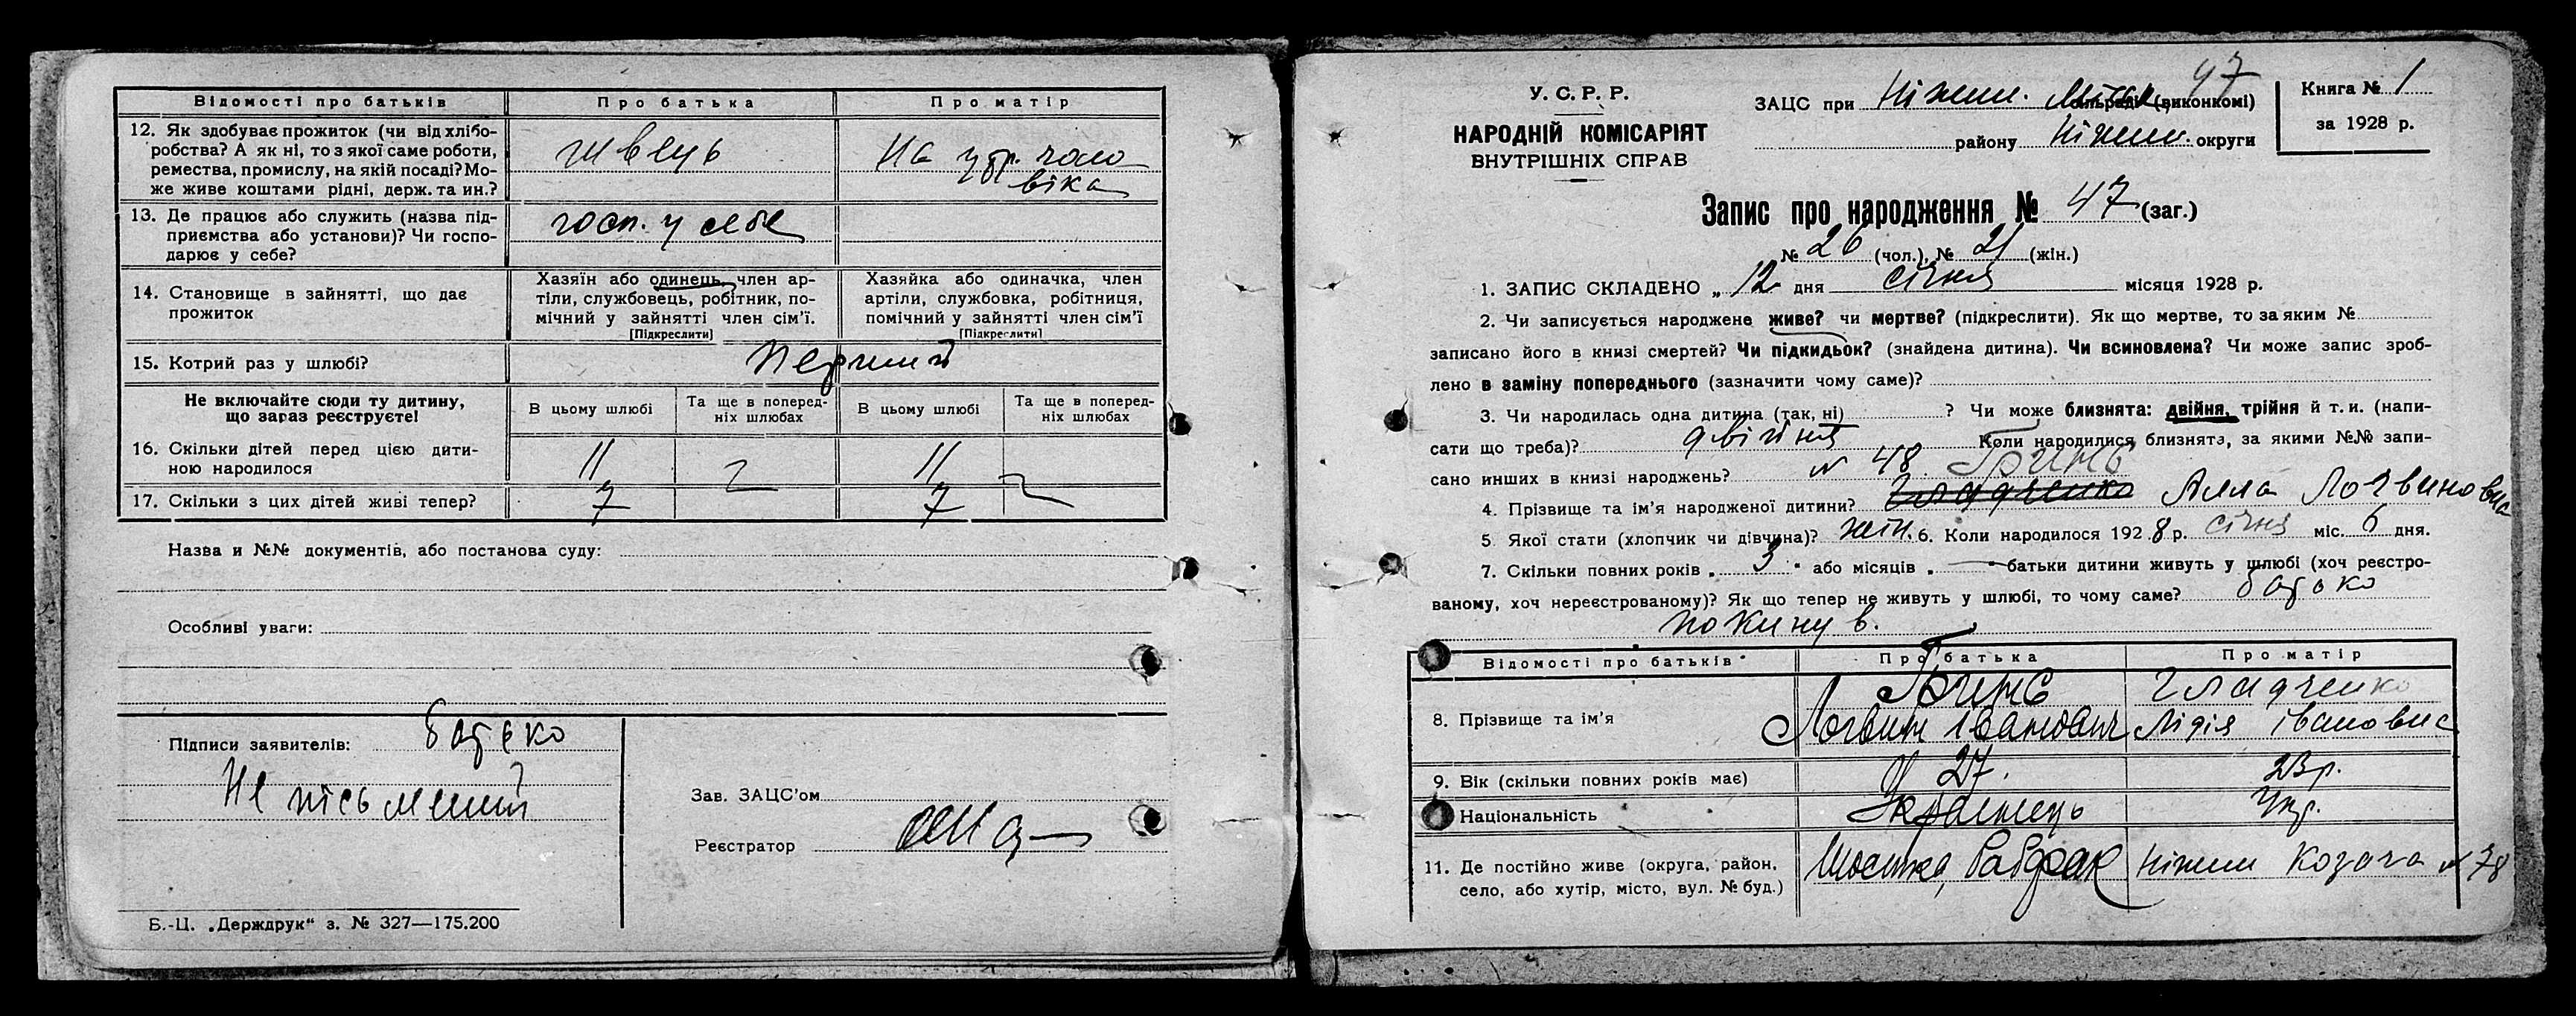 Відомості про батьків Про батька Про матір
12. Як здобуває прожиток (чи від хлібо-
робства? А як ні, то з якої саме роботи,
ремества, промислу, на якій посаді? Мо-
же живе коштами рідні, держ. та ин.?
швець
На утр. чоло
віка
13. Де працює або служить (назва під-
приємства або установи)? Чи госпо-
дарює у себе?
госп. у себе
14. Становище в зайнятті, що дає
прожиток
Хазяїн або одинець, член ар-
тіли, службовець, робітник, по-
мічний у зайнятті член сім'ї.
[Підкреслити]
Хазяйка або одиначка, член
артіли, службовка, робітниця,
помічний у зайнятті член сім'ї
[Підкреслити]
15. Котрий раз у шлюбі? перший
Не включайте сюди ту дитину,
що зараз реєструєте!
В цьому шлюбі
Та ще в поперед-
ніх шлюбах
В цьому шлюбі
Та ще в поперед-
ніх шлюбах
16. Скільки дітей перед цією дити-
ною народилося
17. Скільки з цих дітей живі тепер?
Назва и №№ документів, або постанова суду:
Особливі уваги:
Підписи заявителів: батько
Не пісьменний
Зав. ЗАЦС'ом
Реєстратор
Б.-Ц. „Держдрук“ з. № 327—175.200
47
У. С. Р. Р.
НАРОДНІЙ КОМІСАРІЯТ
ВНУТРІШНІХ СПРАВ
ЗАЦС при Ніжин. Міськ. сільраді (виконкомі)
району Ніжин. округи
Книга № 1
за 1928 р.
Запис про народження № 47 (заг.)
№ 26 (чол.), № 21 (жін.)
1. ЗАПИС СКЛАДЕНО „12 дня січня місяця 1928 р.
2. Чи записується народжене живе? чи мертве? (підкреслити). Як що мертве, то за яким №
записано його в книзі смертей? Чи підкидьок? (знайдена дитина). Чи всиновлена? Чи може запис зроб-
лено в заміну попереднього (зазначити чому саме)?
3. Чи народилась одна дитина (так, ні) ? Чи може близнята: двійня, трійня й т. и. (напи-
сати що треба)? двійня Коли народилися близнята, за якими №№ запи-
сано инших в книзі народжень? № 48. Гринє
4. Прізвище та ім'я народженої дитини? Гладченко Алла Логвиновна
5 Якої стати (хлопчик чи дівчина)? жін. 6. Коли народилося 1928 р. січня міс. 6 дня.
7. Скільки повних років „ 3 “ або місяців „ — “ батьки дитини живуть у шлюбі (хоч реєстро-
ваному, хоч нереєстрованому)? Як що тепер не живуть у шлюбі, то чому саме? батько
покинув.
Відомості про батьків Про батька Про матір
8. Прізвище та ім'я
Гринє
Логвин Іванович
Гладченко
Лідія Івановна
9. Вік (скільки повних років має) 27. 23 р.
Національність Українець Укр.
11. Де постійно живе (округа, район,
село, або хутір, місто, вул. № буд.)
Шостка, Ніжин Козача № 78